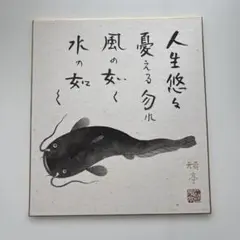 人生悠々
憂える勿れ
風の如く
水の如く